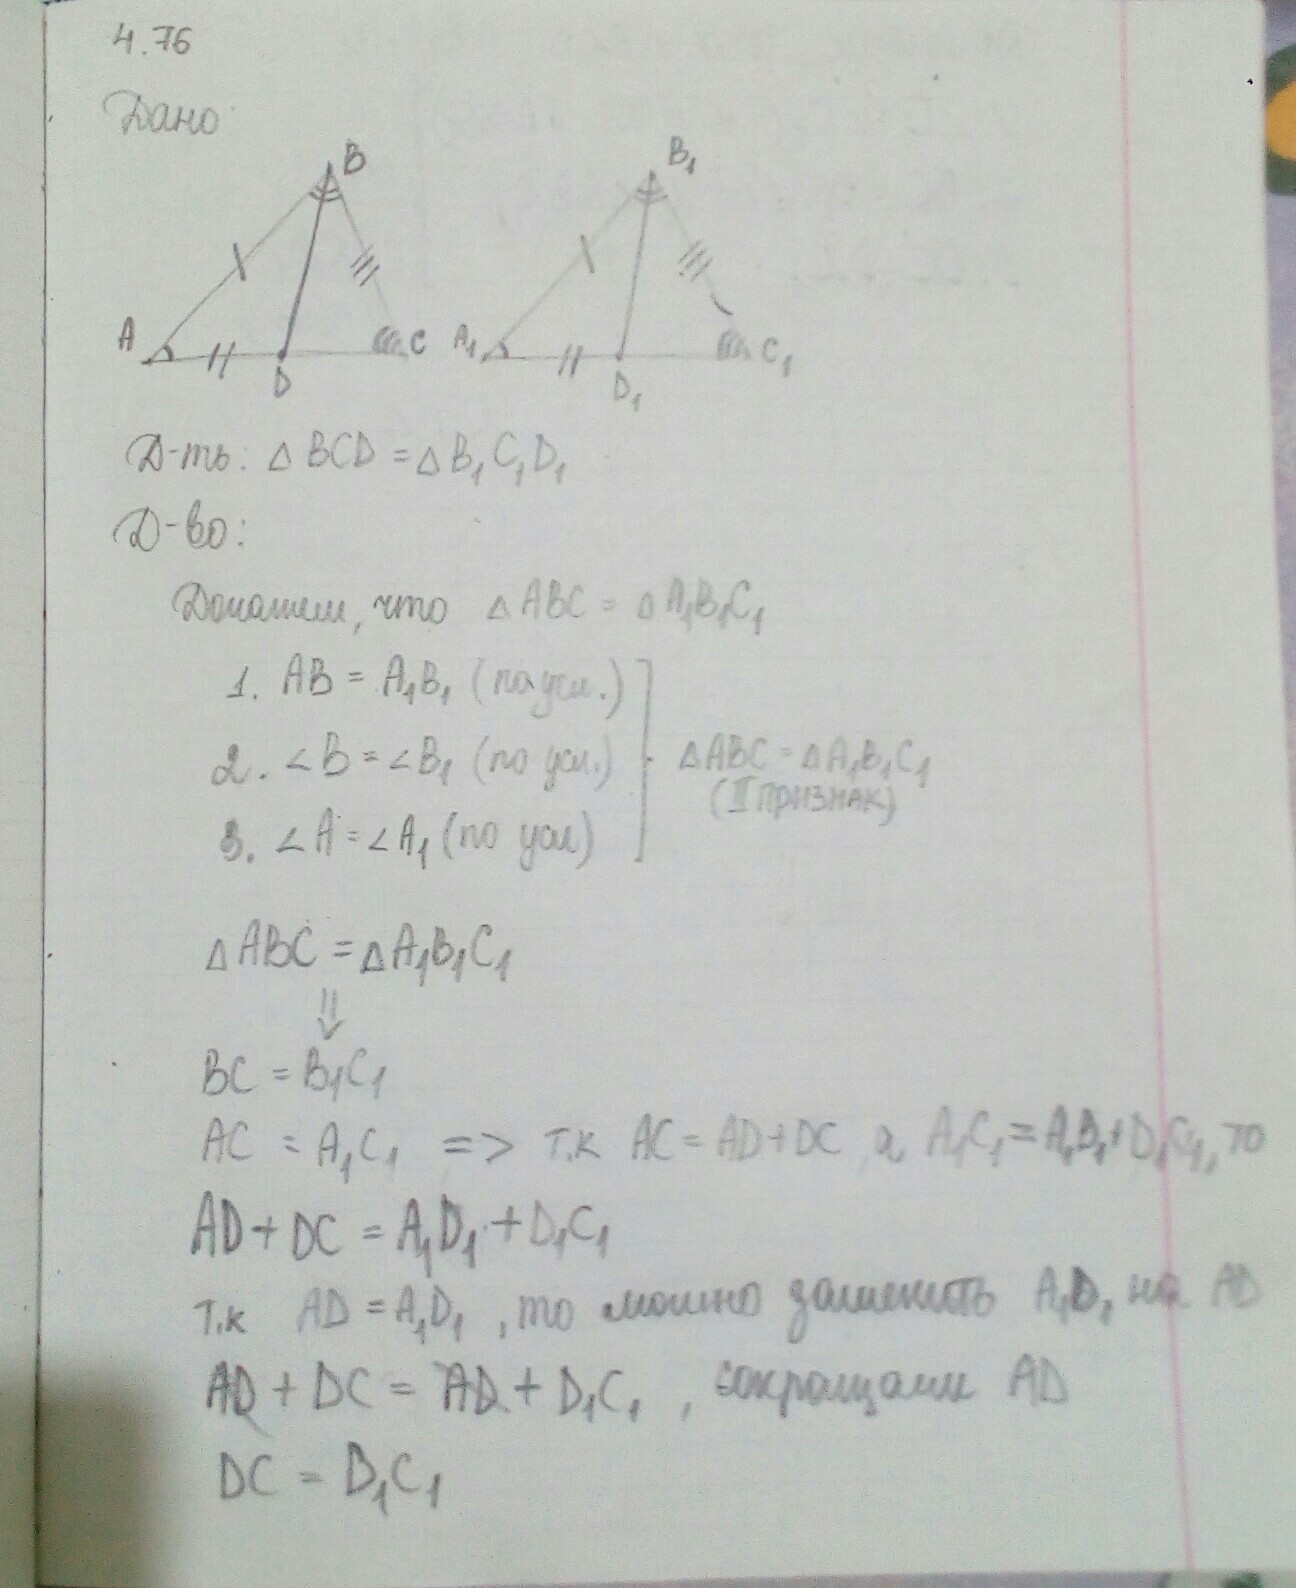 4.76
Дано:
B B₁
A D C A₁ D₁ C₁
Д-ть: △ BCD = △ B₁C₁D₁
Д-во:
Докажем, что △ ABC = △ A₁B₁C₁
1. AB = A₁B₁ (по усл.)
2. ∠B = ∠B₁ (по усл.) △ABC = △A₁B₁C₁
(II ПРИЗНАК)
3. ∠A = ∠A₁ (по усл)
△ ABC = △ A₁B₁C₁
⇓
BC = B₁C₁
AC = A₁C₁ => т.к AC = AD+DC, а A₁C₁ = A₁B₁+D₁C₁, то
AD + DC = A₁D₁ + D₁C₁
т.к AD = A₁D₁, то можно заменить A₁D₁ на AD
AD + DC = AD + D₁C₁, сокращаем AD
DC = D₁C₁